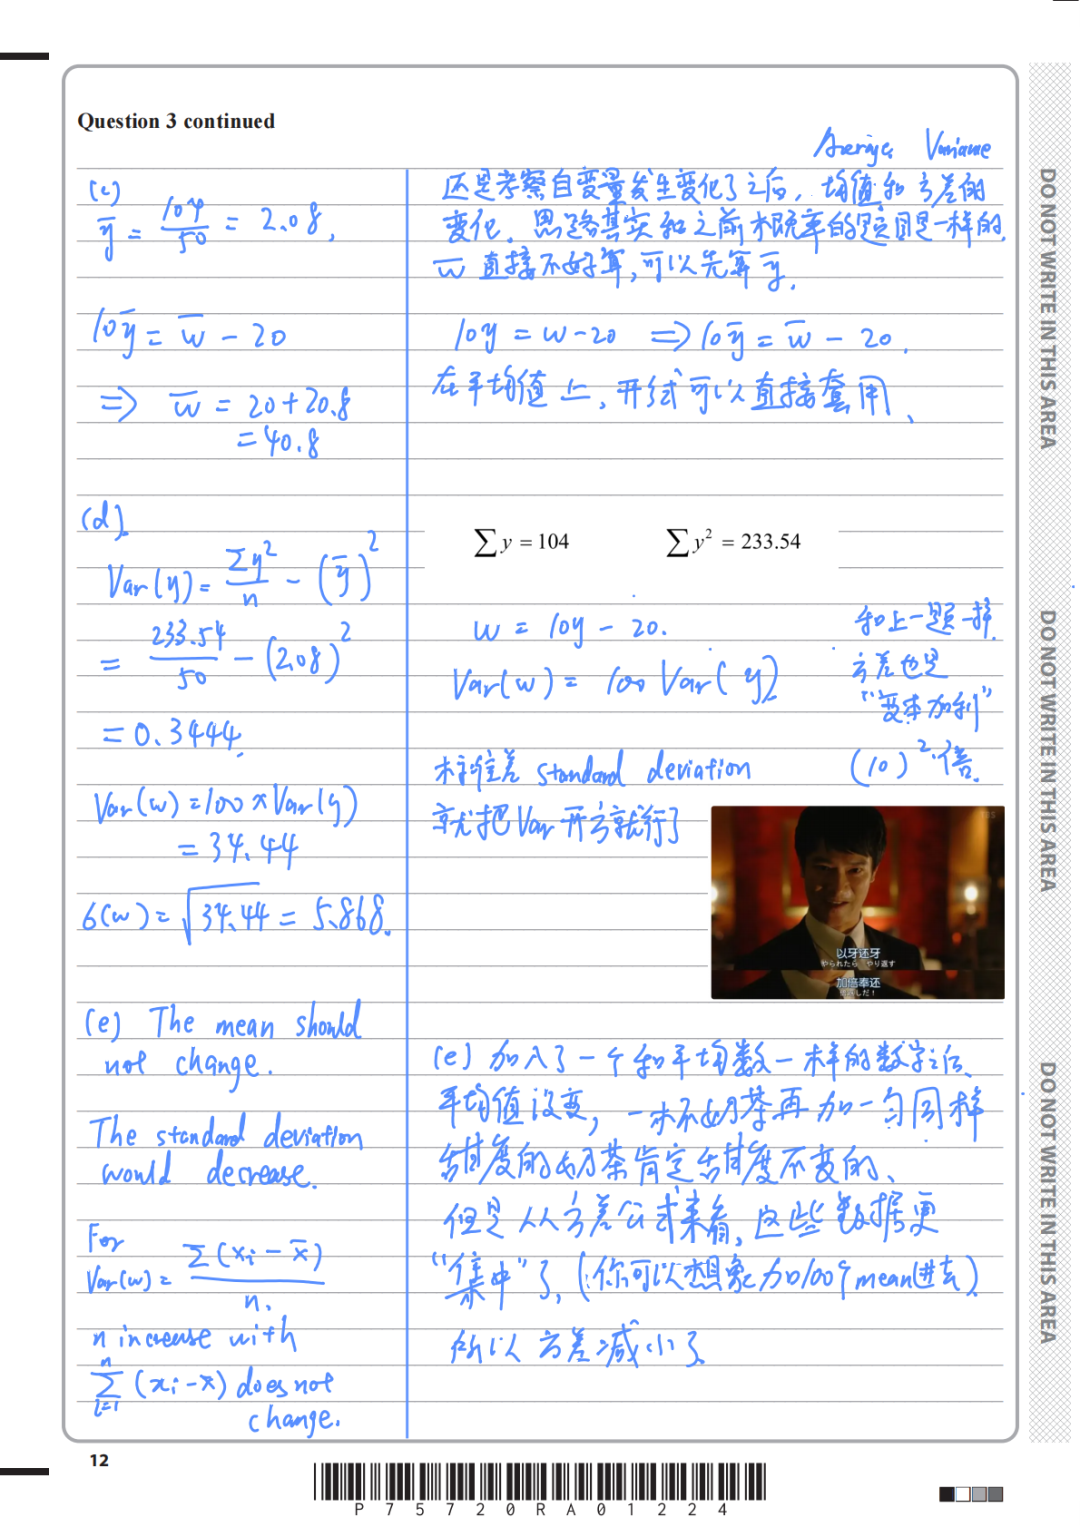 Question 3 continued
Average Variance
(c)
ȳ = 104/50 = 2.08,
10ȳ = w̄ - 20
⇒ w̄ = 20+20.8
= 40.8
还是考察自变量发生变化了之后, 均值和方差的
变化. 思路其实和之前概率的题目是一样的.
w̄ 直接不好算, 可以先算 ȳ.
10y = w-20 ⇒ 10ȳ = w̄ - 20.
在平均值上, 开式可以直接套用、
(d).
Var(y) = Σy²/n - (ȳ)²
= 233.54/50 - (2.08)²
= 0.3444.
Var(w) = 100 × Var(y)
= 34.44
б(w) = √34.44 = 5.868.
∑y = 104 ∑y² = 233.54
w = 10y - 20.
Var(w) = 100 Var(y)
和上一题一样.
方差也是
“变本加利”
(10)²倍.
标准差 standard deviation
就把 Var 开方就行了
以牙还牙
やられたら やり返す
加倍奉还
しだ!
(e) The mean should
not change.
The standard deviation
would decrease.
For
Var(w) = Σ(xᵢ - x̄)/n.
n increase with
∑ⁿᵢ₌₁ (xᵢ-x̄) does not
change.
(e) 加入了一个和平均数一样的数字之后、
平均值没变, 一杯奶茶再加一勺同样
甜度的奶茶肯定甜度不变的、
但是从方差公式来看, 这些数据更
“集中”了, (你可以想象加100个mean进去)
所以方差减小了
DO NOT WRITE IN THIS AREA
DO NOT WRITE IN THIS AREA
DO NOT WRITE IN THIS AREA
12
P75720RA01224